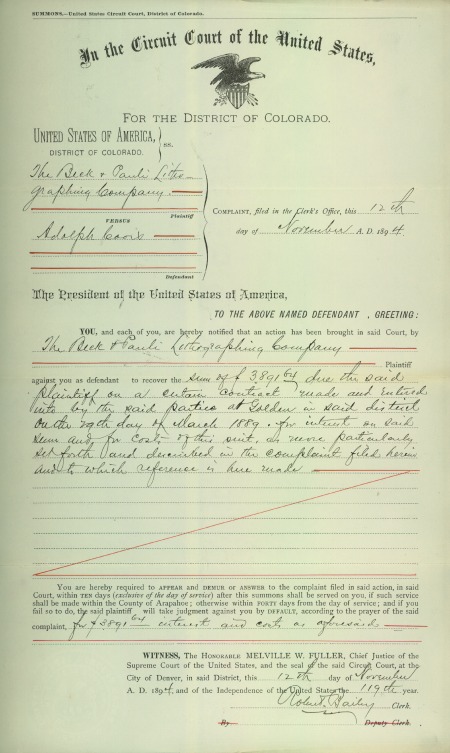 SUMMONS.—United States Circuit Court, District of Colorado.
In the Circuit Court of the United States,
FOR THE DISTRICT OF COLORADO.
UNITED STATES OF AMERICA, } ss.
DISTRICT OF COLORADO.
The Beck & Pauli Litho-
graphing Company.
Plaintiff
VERSUS
Adolph Coors
Defendant
COMPLAINT, filed in the Clerk's Office, this 12th
day of November A. D. 1894
The President of the United States of America,
TO THE ABOVE NAMED DEFENDANT , GREETING:
YOU, and each of you, are hereby notified that an action has been brought in said Court, by
The Beck & Pauli Lithographing Company
, Plaintiff
against you as defendant to recover the sum of $3891 64 due the said
plaintiff on a certain contract made and entered
into by the said parties at Golden in said district
on the 29th day of March 1889. for interest on said
sum and for costs of this suit, as more particularly
set forth and described in the complaint filed herein
and to which reference is here made
You are hereby required to APPEAR and DEMUR or ANSWER to the complaint filed in said action, in said
Court, within TEN days (exclusive of the day of service) after this summons shall be served on you, if such service
shall be made within the County of Arapahoe; otherwise within FORTY days from the day of service; and if you
fail so to do, the said plaintiff will take judgment against you by DEFAULT, according to the prayer of the said
complaint, for $3891 64 interest and costs as aforesaid
WITNESS, The HONORABLE MELVILLE W. FULLER, Chief Justice of the
Supreme Court of the United States, and the seal of the said Circuit Court, at the
City of Denver, in said District, this 12th day of November
A. D. 1894, and of the Independence of the United States the 119th year.
Robert Bailey Clerk.
By Deputy Clerk.